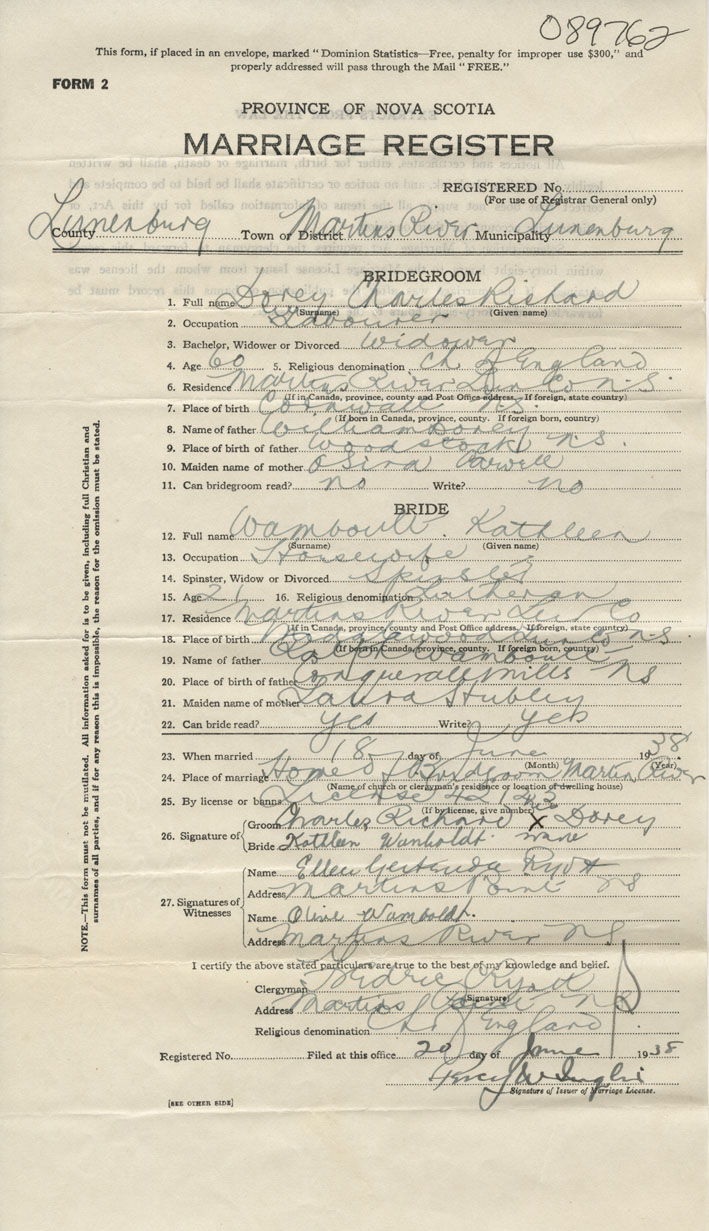 089762
This form, if placed in an envelope, marked “Dominion Statistics—Free, penalty for improper use $300,” and
properly addressed will pass through the Mail “FREE.”
FORM 2
PROVINCE OF NOVA SCOTIA
MARRIAGE REGISTER
REGISTERED No.
(For use of Registrar General only)
County Lunenburg Town or District Martins River Municipality Lunenburg
BRIDEGROOM
1. Full name Dorey Charles Richard
(Surname) (Given name)
2. Occupation Labourer
3. Bachelor, Widower or Divorced Widower
4. Age 60 5. Religious denomination Ch of England
6. Residence Martins River Lun Co N.S.
(If in Canada, province, county and Post Office address. If foreign, state country)
7. Place of birth Cornwall NS.
(If born in Canada, province, county. If foreign born, country)
8. Name of father William Dorey
9. Place of birth of father Woodstock N.S.
10. Maiden name of mother
11. Can bridegroom read? no Write? no
BRIDE
12. Full name Wamboult. Kathleen
(Surname) (Given name)
13. Occupation Housewife
14. Spinster, Widow or Divorced Spinster
15. Age 21 16. Religious denomination Lutheran
17. Residence Martins River Lun Co
(If in Canada, province, county and Post Office address. If foreign, state country)
18. Place of birth Lun Co N.S
(If born in Canada, province, county. If foreign born, country)
19. Name of father Wamboult
20. Place of birth of father Conquerall Mills NS
21. Maiden name of mother Laura Hubley
22. Can bride read? yes Write? yes
23. When married 18 day of June 1938
(Month) (Year)
24. Place of marriage Home of Bridegroom Martin River
(Name of church or clergyman's residence or location of dwelling house)
25. By license or banns License
(If by license, give number)
26. Signature of
Groom Charles Richard X Dorey
Bride Kathleen Wamboldt
27. Signatures of Witnesses
Name Ellen Gertrude
Address Martins Point NS
Name Olive Wamboldt.
Address Martins River NS
I certify the above stated particulars are true to the best of my knowledge and belief.
Clergyman
(Signature)
Address Martins Point NS
Religious denomination Ch of England
Registered No. Filed at this office 20 day of June 1938
Signature of Issuer of Marriage License.
[SEE OTHER SIDE]
NOTE.—This form must not be mutilated. All information asked for is to be given, including full Christian and
surnames of all parties, and if for any reason this is impossible, the reason for the omission must be stated.